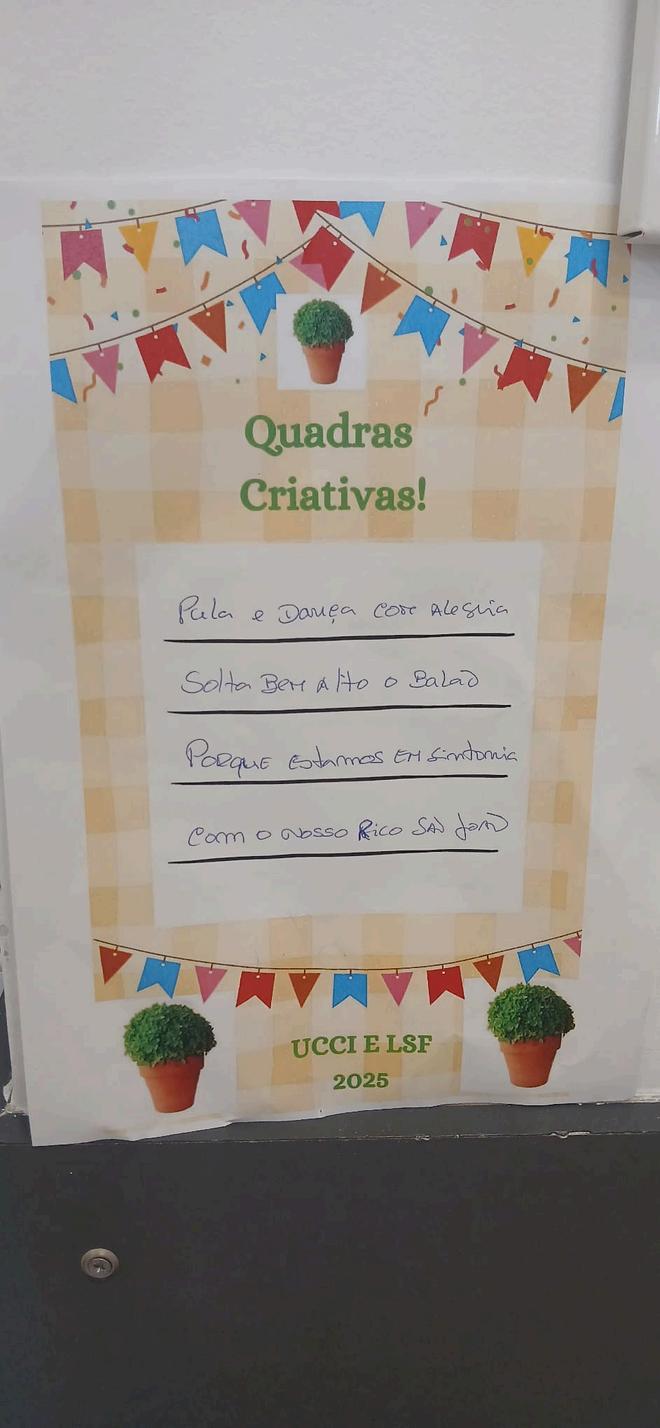 Quadras
Criativas!
Pula e Dança com Alegria
Solta Bem Alto o Balão
Porque estamos em sintonia
Com o nosso Rico São João
UCCI E LSF
2025